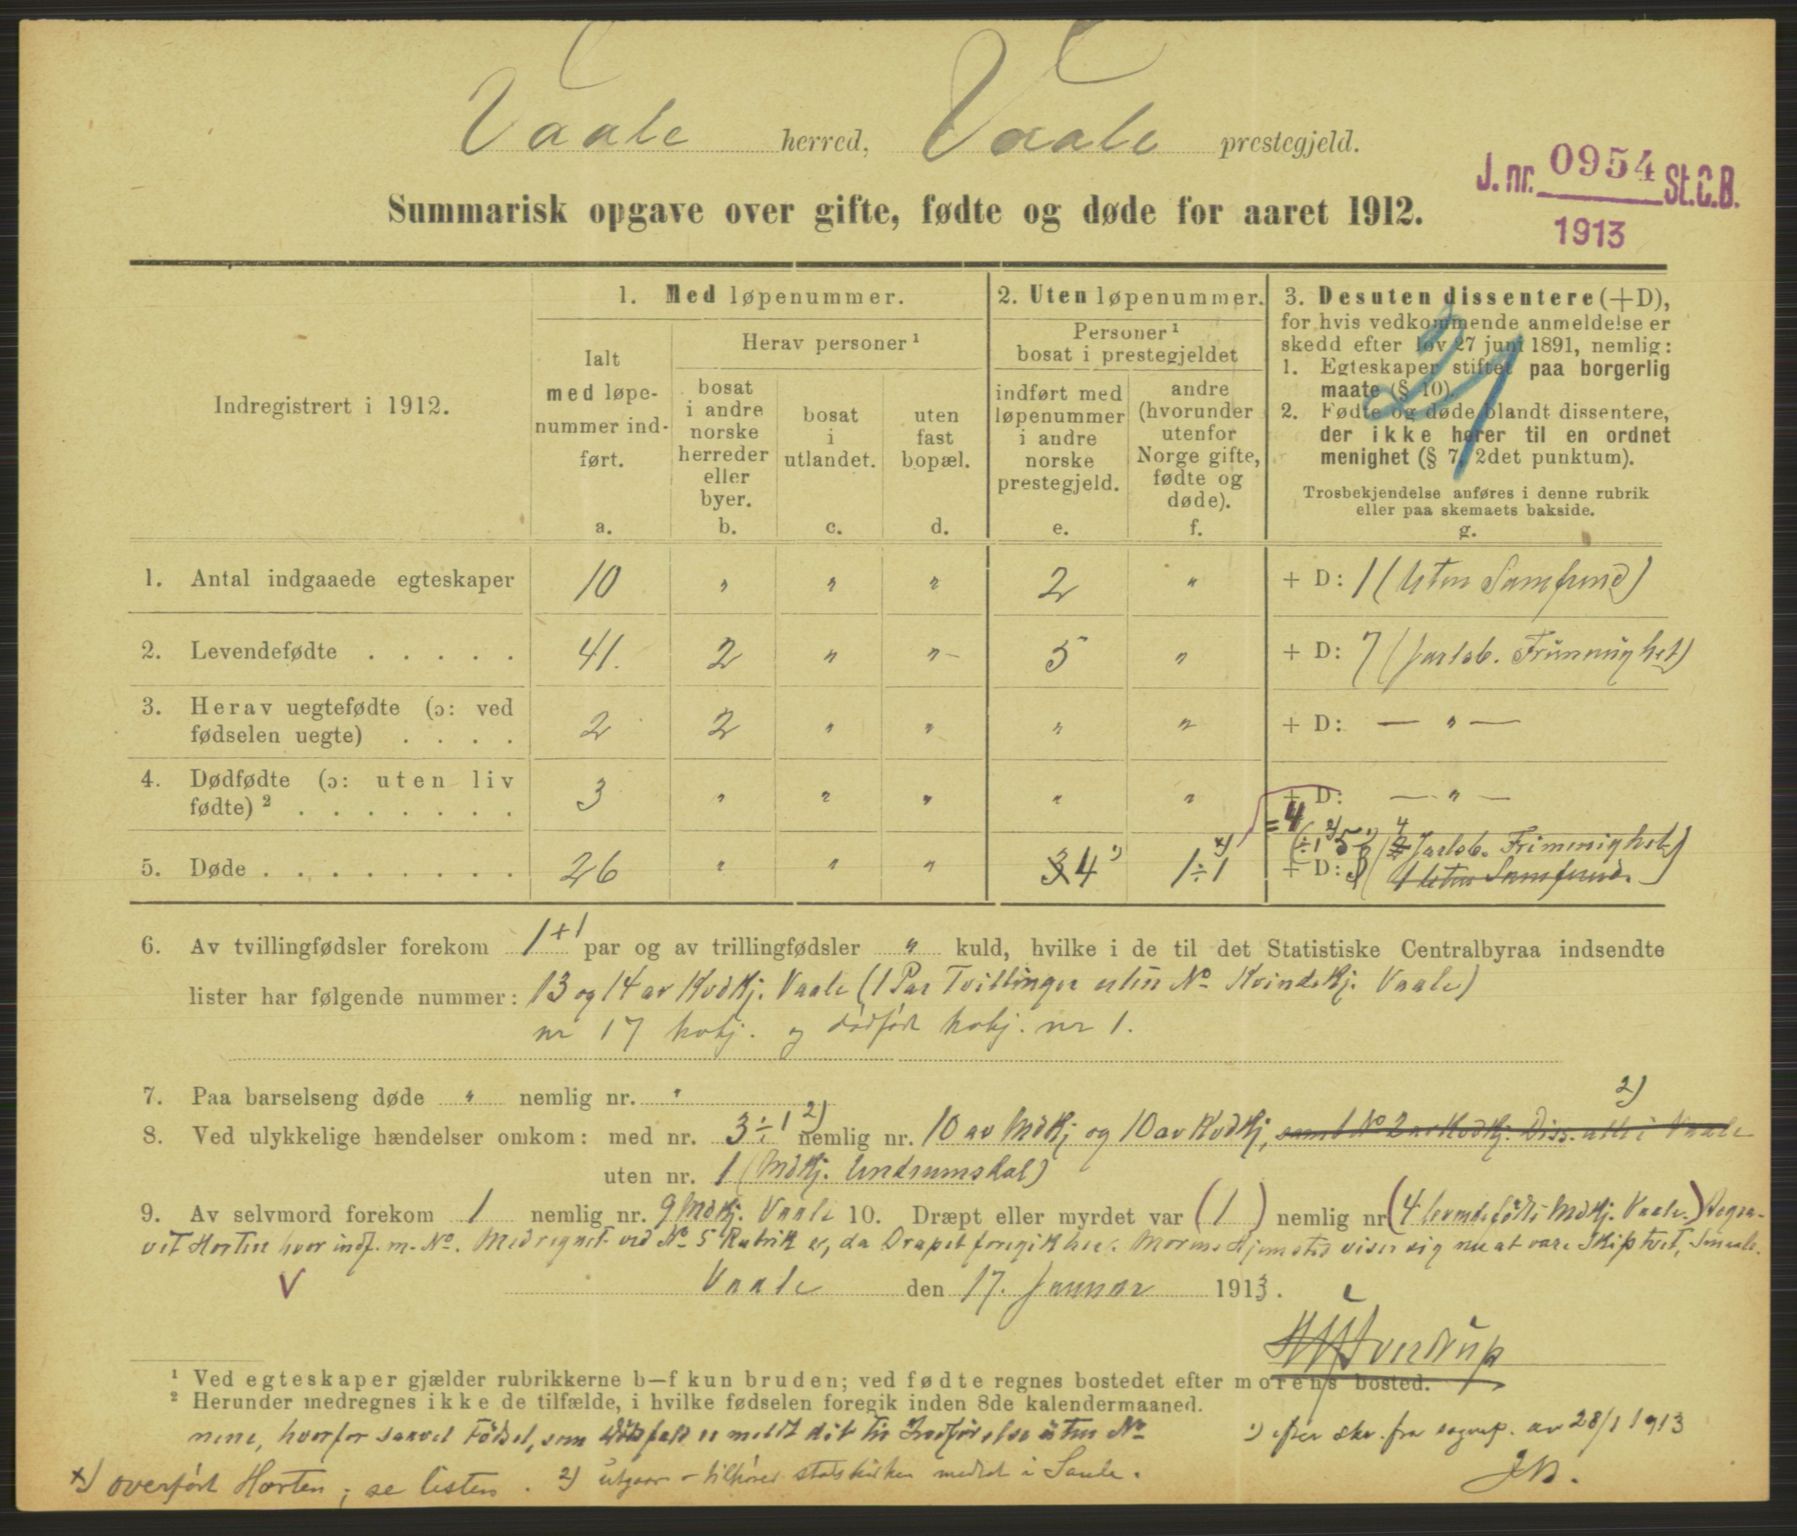 Vaale herred, Vaale prestegjeld.
J. nr. 0954 St.C.B.
1913
Summarisk opgave over gifte, fødte og døde for aaret 1912.
Indregistrert i 1912.
1. Med løpenummer.
Ialt
med løpe-
nummer ind-
ført.
a.
Herav personer ¹
bosat
i andre
norske
herreder
eller
byer.
b.
bosat
i
utlandet.
c.
uten
fast
bopæl.
d.
2. Uten løpenummer.
Personer ¹
bosat i prestegjeldet
indført med
løpenummer
i andre
norske
prestegjeld.
e.
andre
(hvorunder
utenfor
Norge gifte,
fødte og
døde).
f.
3. Desuten dissentere (+D),
for hvis vedkommende anmeldelse er
skedd efter lov 27 juni 1891, nemlig:
1. Egteskaper stiftet paa borgerlig
maate (§ 10).
2. Fødte og døde blandt dissentere,
der ikke hører til en ordnet
menighet (§ 7, 2det punktum).
Trosbekjendelse anføres i denne rubrik
eller paa skemaets bakside.
g.
21
1. Antal indgaaede egteskaper 10 " " " 2 " + D: 1 (Uten Samfund)
2. Levendefødte . . . . . 41. 2 " " – 5 " + D: 7 (Jarlsb. Frimenighet)
3. Herav uegtefødte (ɔ: ved
fødselen uegte) . . . . 2 2 " " " " + D: — " —
4. Dødfødte (ɔ: uten liv
fødte) ² . . . . . . . 3 " " " " " + D: — " —
= 4
(÷1 ²) 5 4 Jarlsb. Frimenighet
5. Døde . . . . . . . . 26 " " " 3 4 ¹) 1÷1 ˣ) + D: (1 Uten Samfund.)
6. Av tvillingfødsler forekom 1 + 1 par og av trillingfødsler " kuld, hvilke i de til det Statistiske Centralbyraa indsendte
lister har følgende nummer: 13 og 14 av Kvdkj. Vaale (1 Par Tvillinger uten No Kvindekj. Vaale)
nr 17 kvkj. og dødfødt kvkj. nr 1.
7. Paa barselseng døde " nemlig nr. "
8. Ved ulykkelige hændelser omkom: med nr. 3 ÷ 1 ²) nemlig nr. 10 av Mdkj og 10 av Kvdkj, samt No 2 av Kvdkj. Diss. alle i Vaale ²)
uten nr. 1 (Mdkj. Undrumsdal)
9. Av selvmord forekom 1 nemlig nr. 9 Mdkj. Vaale 10. Dræpt eller myrdet var (1) nemlig nr (4 levendefødte Mdkj. Vaale.) Begra-
vet Horten hvor indf. m. No. Medregnet ved No 5 Rubrik e, da Drapet foregik her. Morens Hjemsted viser sig nu at være Skiptvet, Smaale-
V
Vaale den 17. Januar 1913.
Sverdrup
¹ Ved egteskaper gjælder rubrikkerne b—f kun bruden; ved fødte regnes bostedet efter morens bosted.
² Herunder medregnes ikke de tilfælde, i hvilke fødselen foregik inden 8de kalendermaaned.
nene, hvorfor saavel Fødsel, som Dødsfald er meldt dit til Indførelse uten No
¹) efter skr. fra sognep. av 28/1 1913
x) overført Horten; se listen. ²) utgaar - tilhører statskirken medtat i Saale.